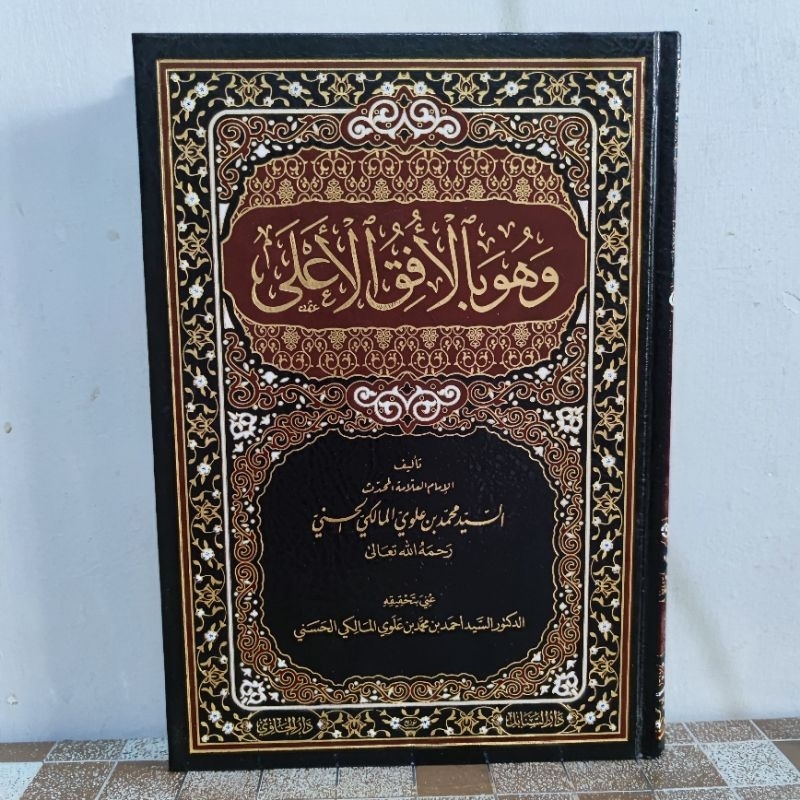 وَهُوَ بِٱلْأُفُقِ ٱلْأَعْلَىٰ
تأليف
الإمام العلامة المحدث
السيد محمد بن علوي المالكي الحسني
رحمه الله تعالى
عني بتحقيقه
الدكتور السيد احمد بن محمد بن علوي المالكي الحسني
دار السنابل
دار الحاوي